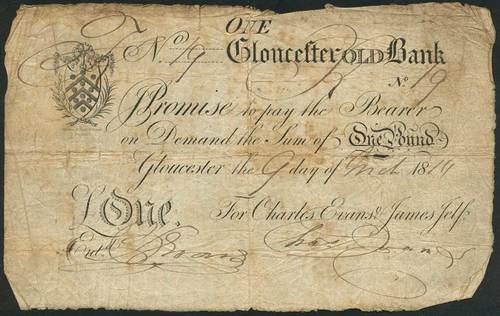 ONE
No. 19 Gloucester OLD Bank
No 19
Promise to pay the Bearer
on Demand the Sum of One Pound
Gloucester the 9 day of 1814
£One. For Charles Evans & James Jelf.
Entd. Evans Chas Evans